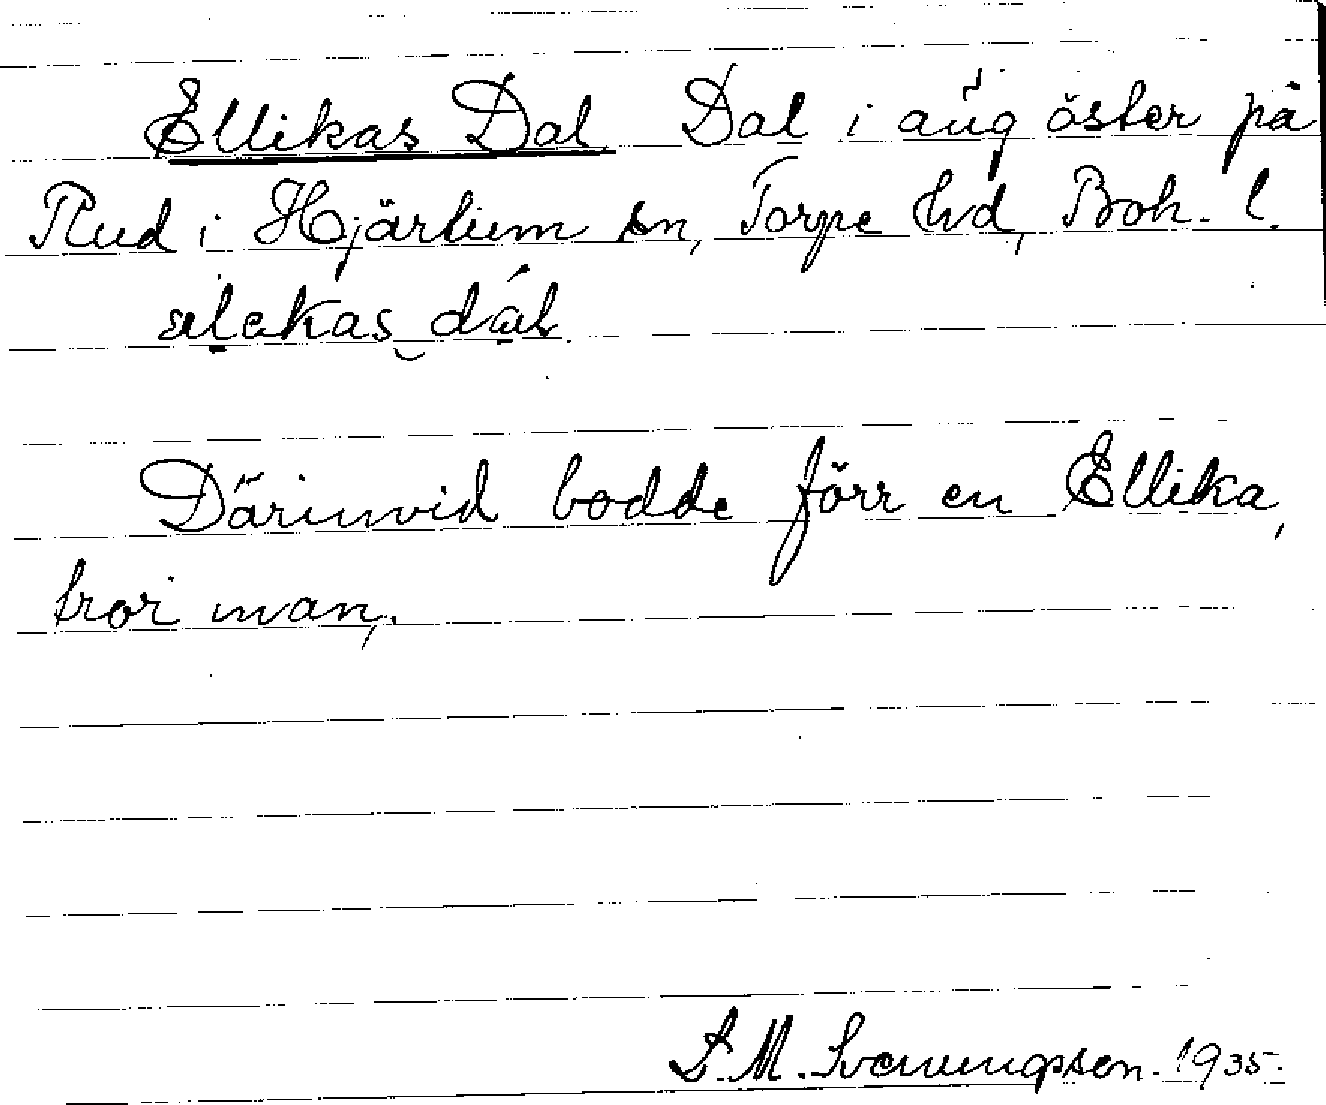 Ellikas Dal Dal i äng öster på
Rud i Hjärtum sn, Torpe hd, Boh. l.
Därinvid bodde förr en Ellika,
tror man,.
S. M. Svenungsson. 1935.